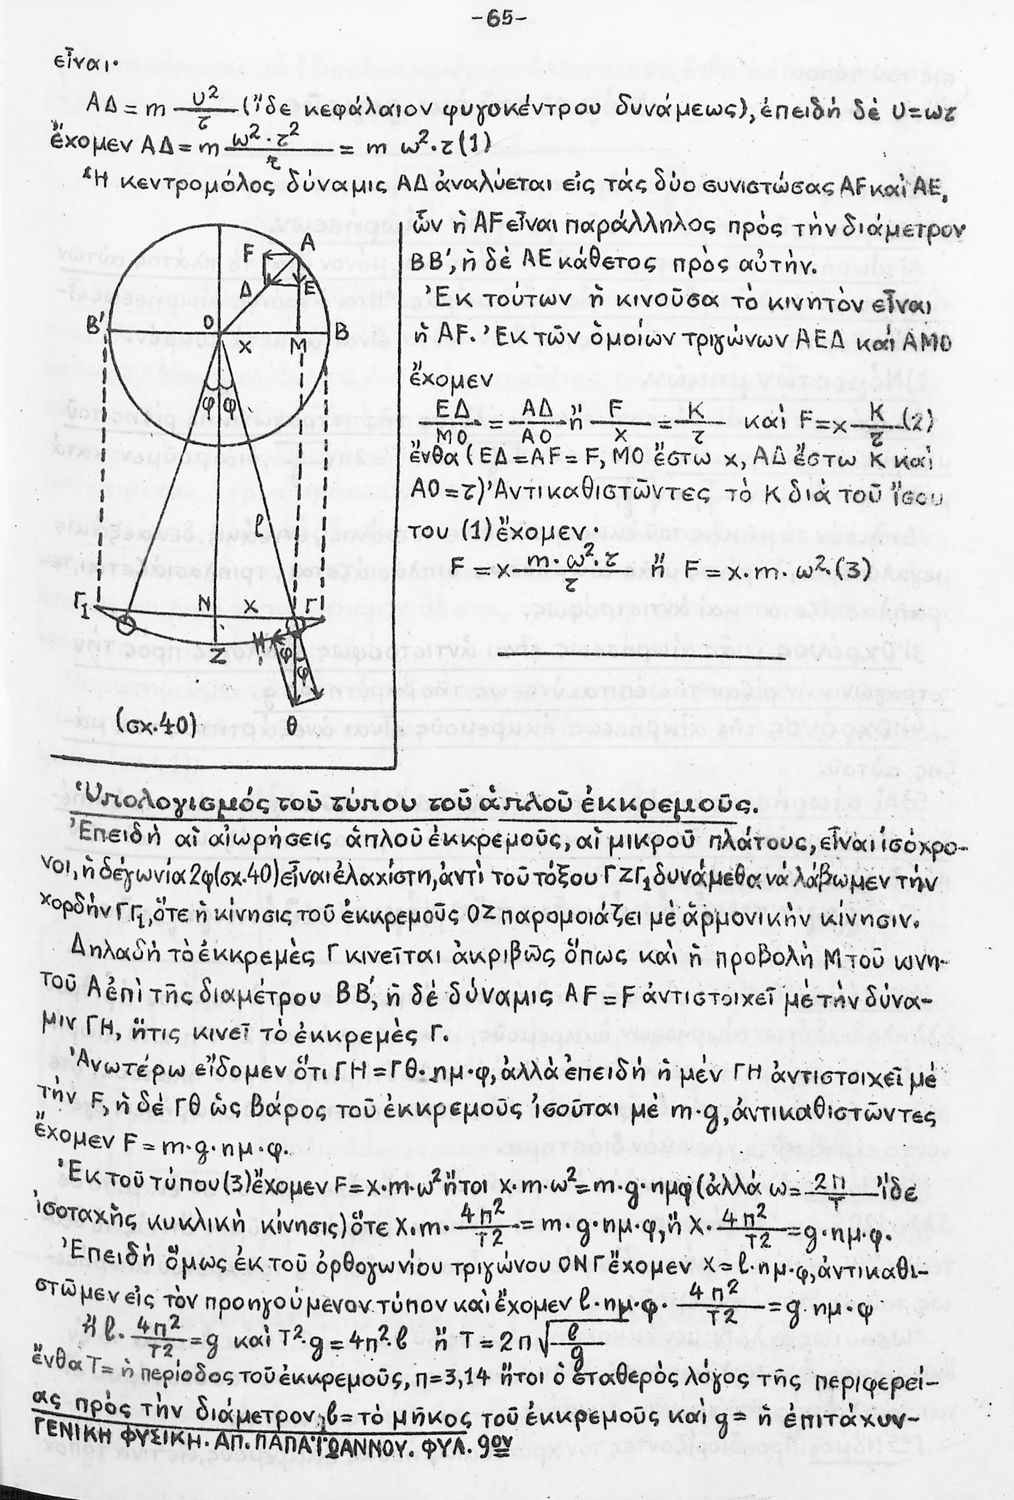 -65-
εἶναι·
ΑΔ = m υ²/τ (ἴδε κεφάλαιον φυγοκέντρου δυνάμεως), ἐπειδή δέ υ=ωτ
ἔχομεν ΑΔ = m ω²·τ²/τ = m ω²·τ (1)
Ἡ κεντρομόλος δύναμις ΑΔ ἀναλύεται εἰς τάς δύο συνιστώσας AF καί ΑΕ,
ὧν ἡ AF εἶναι παράλληλος πρός τήν διάμετρον
ΒΒ', ἡ δέ ΑΕ κάθετος πρός αὐτήν.
Ἐκ τούτων ἡ κινοῦσα τό κινητόν εἶναι
ἡ AF. Ἐκ τῶν ὁμοίων τριγώνων ΑΕΔ καί ΑΜΟ
ἔχομεν
ΕΔ/ΜΟ = ΑΔ/ΑΟ ἤ F/x = K/τ καί F=x K/τ (2)
ἔνθα (ΕΔ=AF=F, ΜΟ ἔστω x, ΑΔ ἔστω Κ καί
ΑΟ=τ) Ἀντικαθιστῶντες τό Κ διά τοῦ ἴσου
του (1) ἔχομεν·
F = x m·ω²·τ/τ ἤ F = x·m·ω²·(3)
F A
Δ E
B' O x M B
φ φ
l
Γ₁ N x Γ
Z H φ φ
(σχ.40) θ
Ὑπολογισμός τοῦ τύπου τοῦ ἁπλοῦ ἐκκρεμοῦς.
Ἐπειδή αἱ αἰωρήσεις ἁπλοῦ ἐκκρεμοῦς, αἱ μικροῦ πλάτους, εἶναι ἰσόχρο-
νοι, ἡ δέ γωνία 2φ (σχ.40) εἶναι ἐλαχίστη, ἀντί τοῦ τόξου ΓΖΓ₁ δυνάμεθα νά λάβωμεν τήν
χορδήν ΓΓ₁, ὅτε ἡ κίνησις τοῦ ἐκκρεμοῦς ΟΖ παρομοιάζει μέ ἁρμονικήν κίνησιν.
Δηλαδή τό ἐκκρεμές Γ κινεῖται ἀκριβῶς ὅπως καί ἡ προβολή Μ τοῦ
τοῦ Α ἐπί τῆς διαμέτρου ΒΒ', ἡ δέ δύναμις AF=F ἀντιστοιχεῖ μέ τήν δύνα-
μιν ΓΗ, ἥτις κινεῖ τό ἐκκρεμές Γ.
Ἀνωτέρω εἴδομεν ὅτι ΓΗ=Γθ.ημ·φ, ἀλλά ἐπειδή ἡ μέν ΓΗ ἀντιστοιχεῖ μέ
τήν F, ἡ δέ Γθ ὡς βάρος τοῦ ἐκκρεμοῦς ἰσοῦται μέ m·g, ἀντικαθιστῶντες
ἔχομεν F = m·g·ημ·φ.
Ἐκ τοῦ τύπου (3) ἔχομεν F=x·m·ω² ἤτοι x·m·ω²=m·g·ημφ (ἀλλά ω=2π/Τ ἴδε
ἰσοταχής κυκλική κίνησις) ὅτε x.m· 4π²/Τ² = m·g·ημ·φ, ἤ x· 4π²/Τ² = g·ημ·φ.
Ἐπειδή ὅμως ἐκ τοῦ ὀρθογωνίου τριγώνου ΟΝΓ ἔχομεν x=l·ημ·φ, ἀντικαθι-
στῶμεν εἰς τόν προηγούμενον τύπον καί ἔχομεν l·ημ·φ· 4π²/Τ² = g·ημ·φ
ἤ l· 4π²/Τ² = g καί Τ²·g = 4π²·l ἤ Τ = 2π√l/g
ἔνθα Τ= ἡ περίοδος τοῦ ἐκκρεμοῦς, π=3,14 ἤτοι ὁ σταθερός λόγος τῆς περιφερεί-
ας πρός τήν διάμετρον, l= τό μῆκος τοῦ ἐκκρεμοῦς καί g= ἡ ἐπιτάχυν-
ΓΕΝΙΚΗ ΦΥΣΙΚΗ. ΑΠ. ΠΑΠΑΪΩΑΝΝΟΥ. ΦΥΛ. 9ον